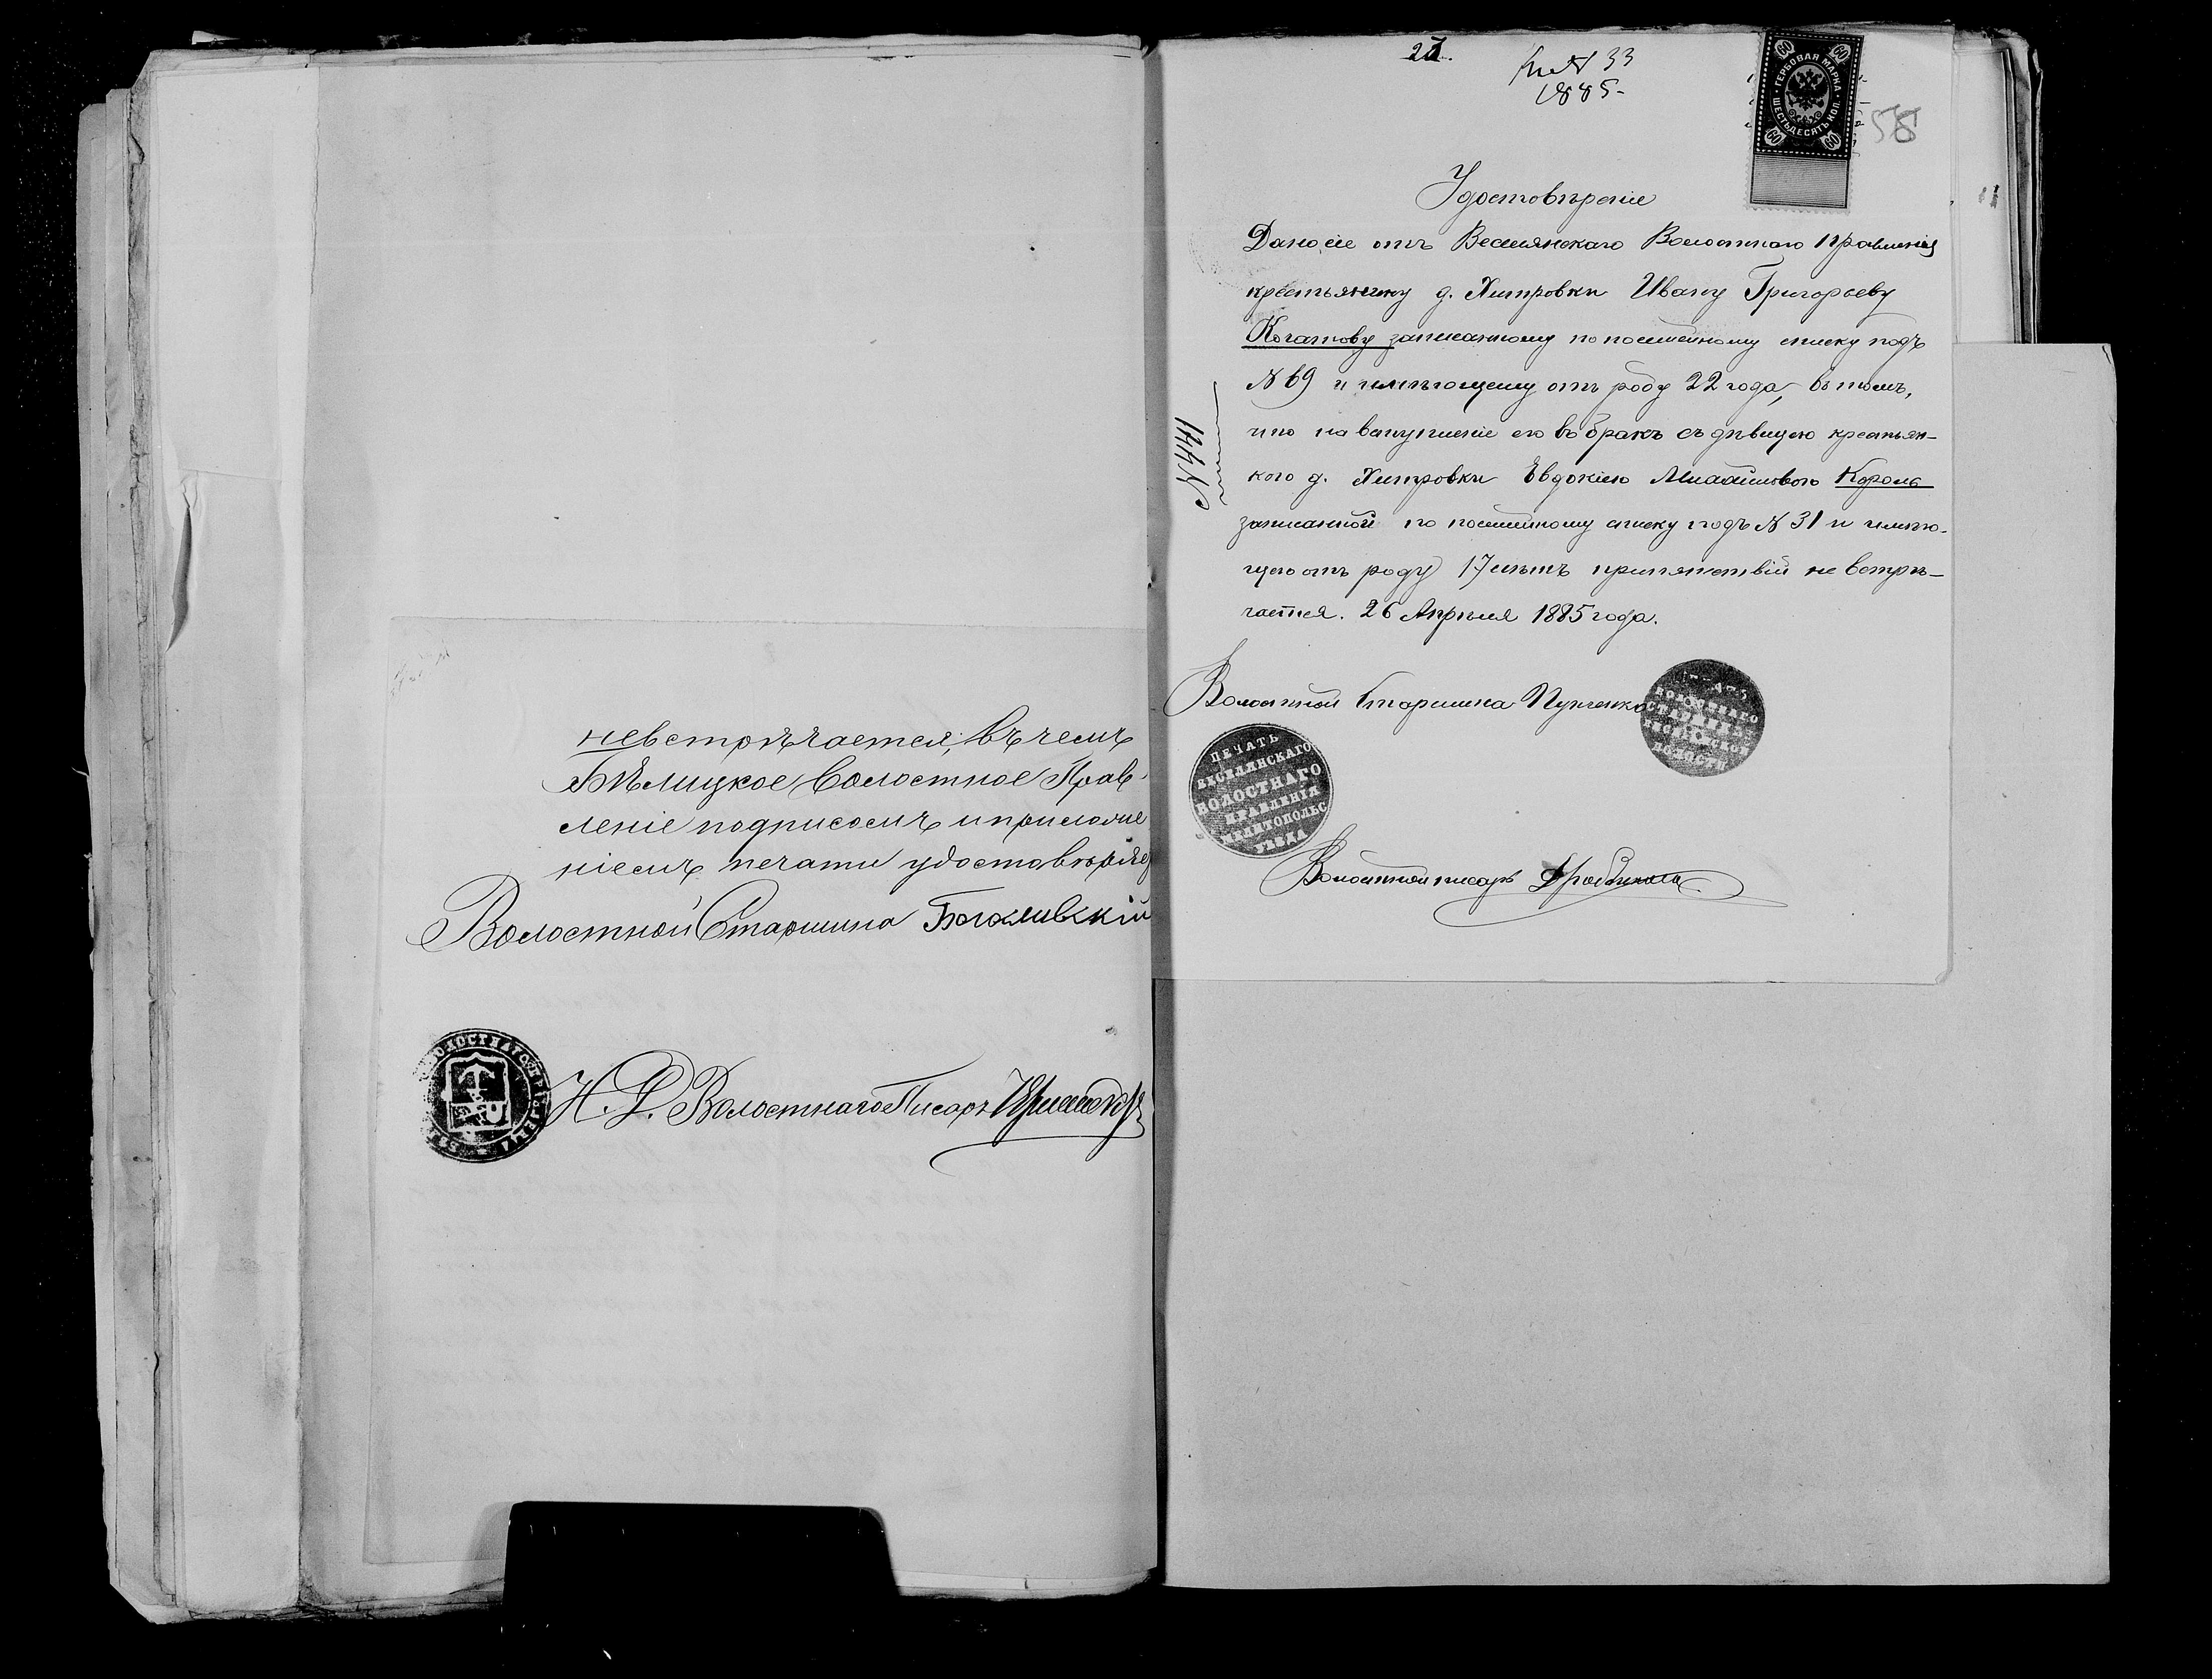 невстрѣчается, въ чемъ
Бѣлицкое Волостное Прав-
леніе подписомъ и приложе
ніемъ печати удостовѣряе
Волостной Старшина
ВОЛОСТНАГО
И. Д. Волостнаго Писаръ
27.
№ 33
1885
ГЕРБОВАЯ МАРКА
ШЕСТЬДЕСЯТЪ КОП.
60 60 60 60
58
Удостовѣреніе
Дано сіе отъ Веселянскаго Волостного правленія
крестьянину д. Хитровки Ивану Григорьеву
Когатову записанному по посемейному списку подъ
№ 69 и имѣющему отъ роду 22 года, въ томъ,
что на вступленіе его въ бракъ съ дѣвицею крестьян-
кою д. Хитровки Евдокіею Михайловою Король
записанной по посемейному списку подъ № 31 и имѣю-
щею отъ роду 17 лѣтъ препятствій не встрѣ-
чается. 26 Апрѣля 1885 года.
№ 441
Волостной Старшина Пупченко
ПЕЧАТЬ
ВЕСЕЛЯНСКАГО
ВОЛОСТНАГО
ПРАВЛЕНІЯ
МЕЛИТОПОЛЬС
УѢЗДА
ВОЛОСТНАГО
СТАРШИНЫ
ВОЛОСТИ
Волостной писарь